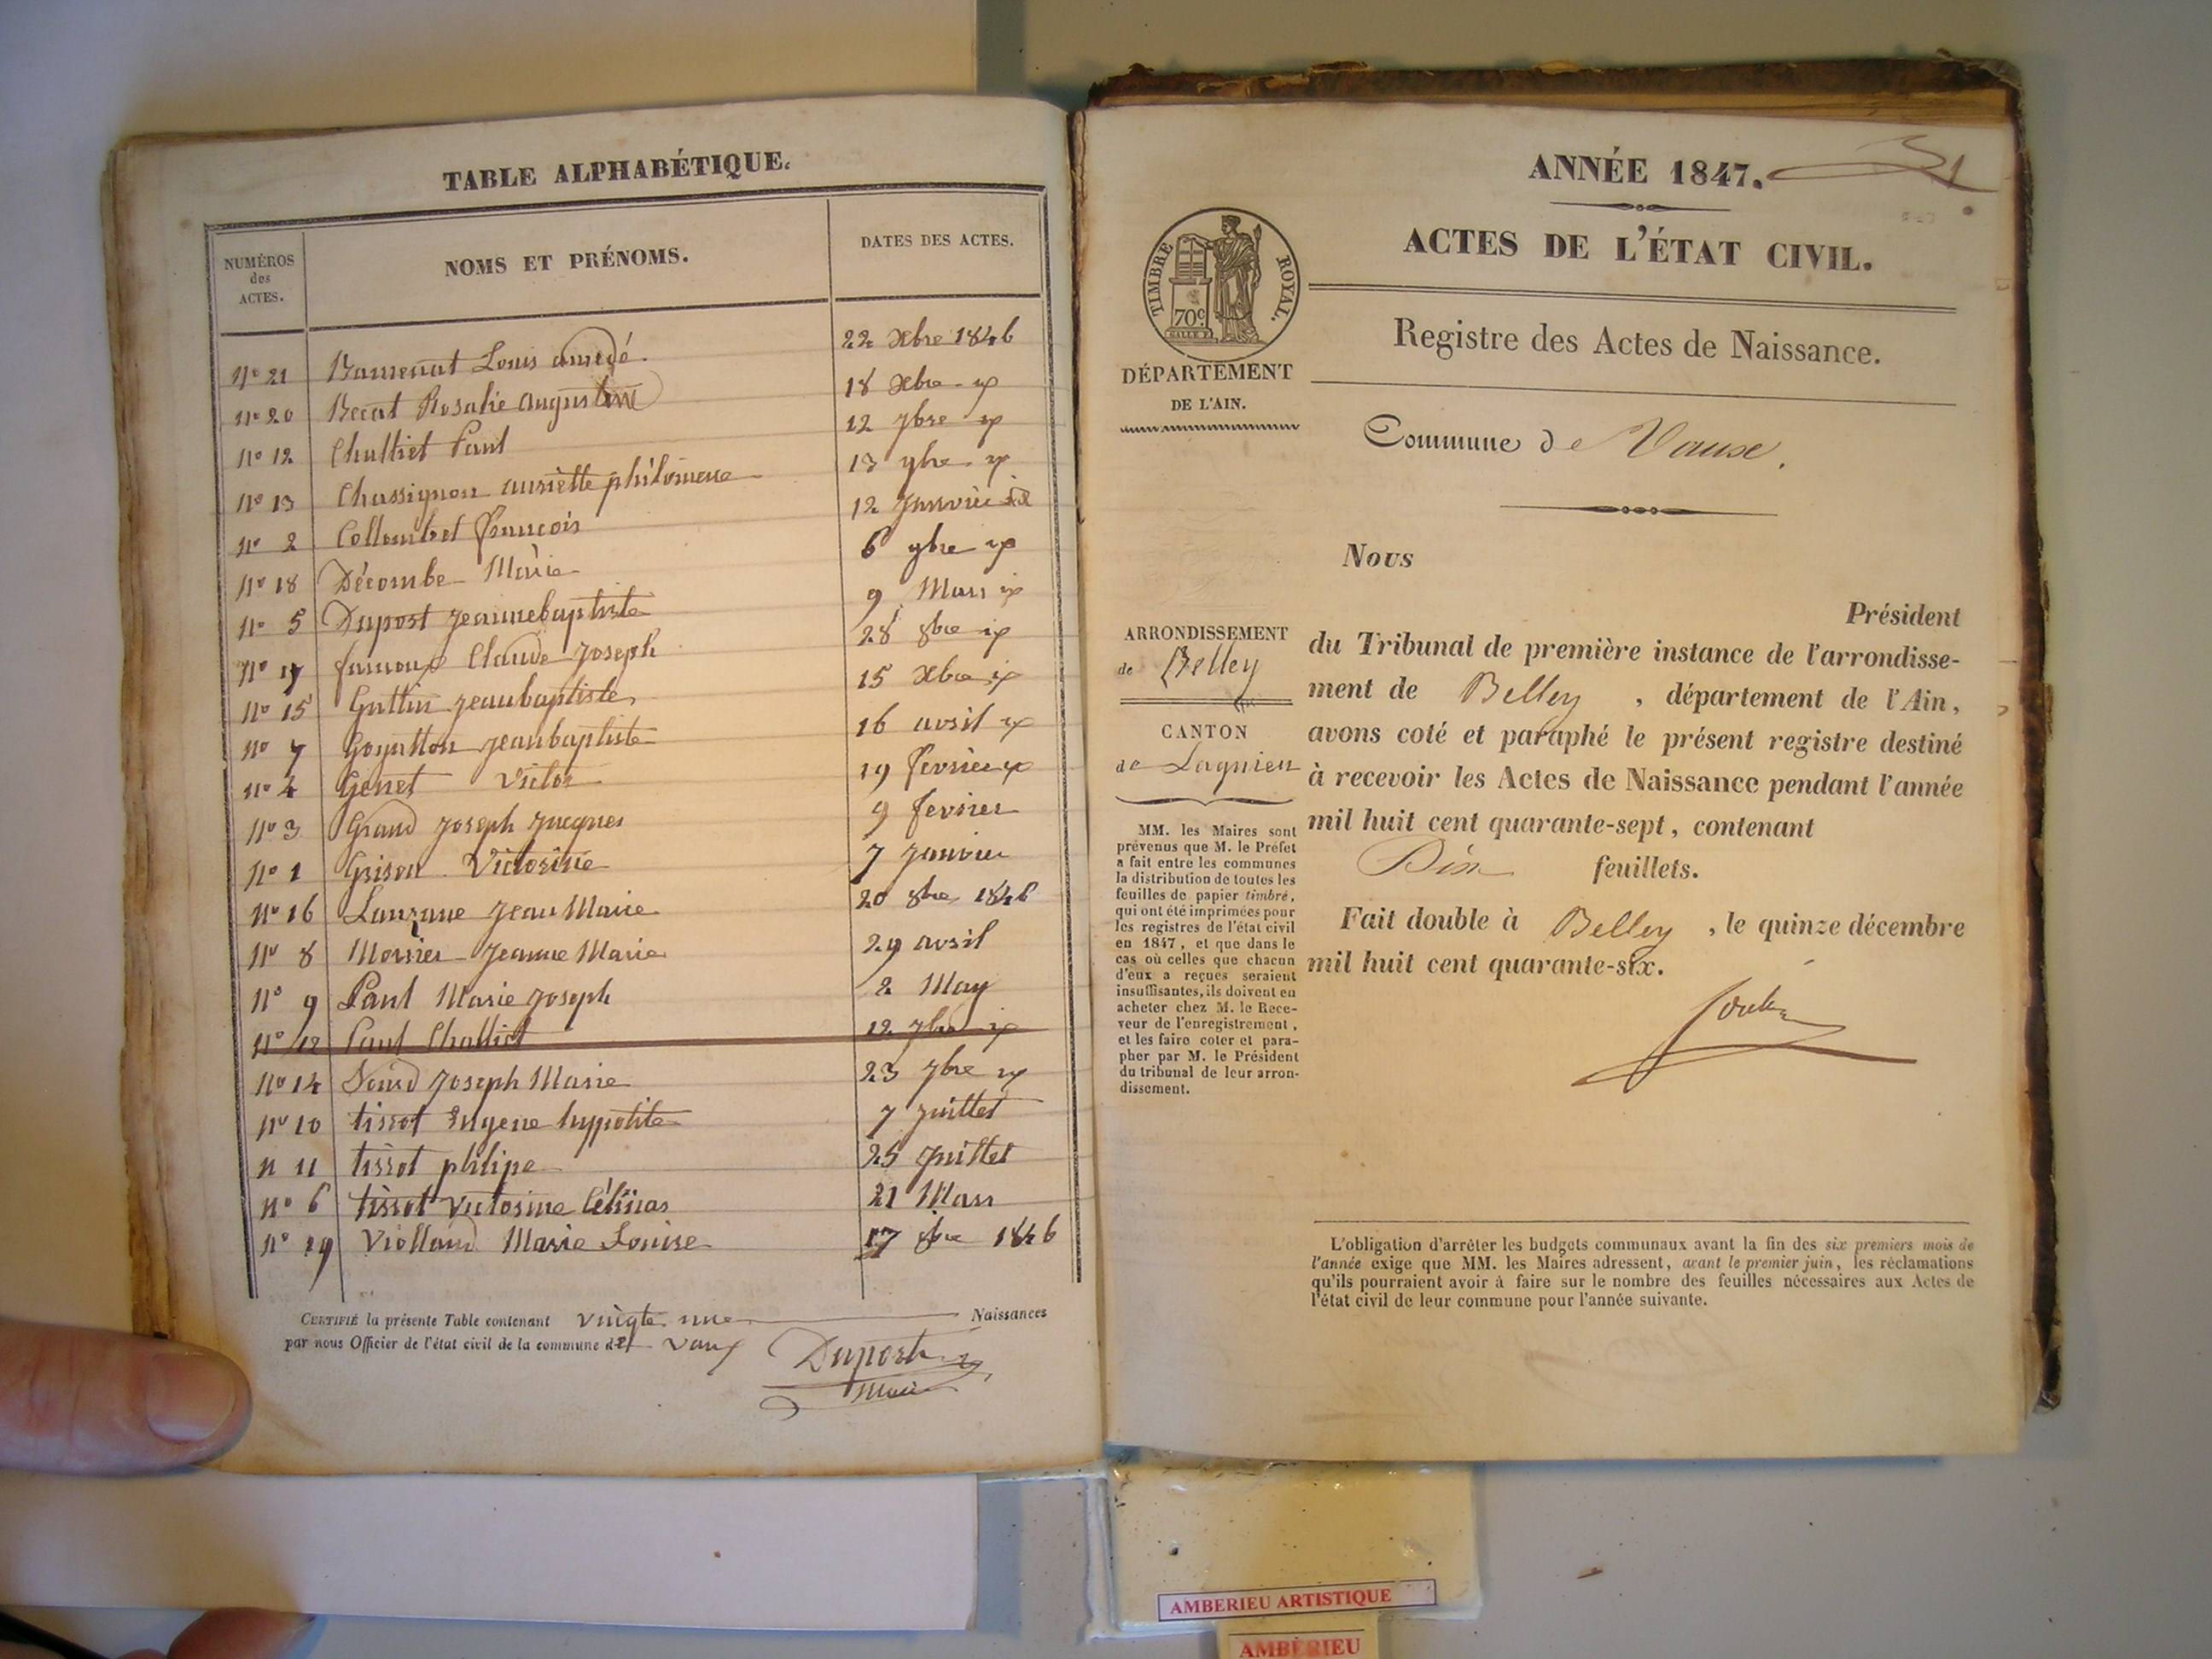 TABLE ALPHABÉTIQUE.
NUMÉROS des ACTES. NOMS ET PRÉNOMS. DATES DES ACTES.
N° 21 Louis amedé 22 Xbre 1846
N° 20 Becat Rosalie augustine 18 Xbre
N° 12 Challiet Paul 12 7bre
N° 13 Chassignon philomene 13
N° 2 Collombet françois 12 Janvier
N° 18 Décombe Marie 6 9bre
N° 5 Dupost jeannebaptiste 9 Mars
N° 17 Claude Joseph 28 8bre
N° 15 Guttin jeanbaptiste 15
N° 7 Goyatton jeanbaptiste 16 avril
N° 4 Genet Victor 19 fevrier
N° 3 Grand Joseph Jacques 9 fevrier
N° 1 Grison Victorine 7 Janvier
N° 16 Lauzane Jean Marie 20 8bre 1846
N° 8 Mornier Jeanne Marie 29 avril
N° 9 Paul Marie Joseph 2 May
N° 12 Paul Challiet 12 7bre
N° 14 Joseph Marie 23 7bre
N° 10 tissot Eugene hyppolite 7 Juillet
N 11 tissot philipe 25 Juillet
N° 6 tissot Victorine 21 Mars
N° 19 Violland Marie Louise 17 1846
CERTIFIÉ la présente Table contenant vingte une Naissances
par nous Officier de l'état civil de la commune de Vaux
Duport
Maire
ANNÉE 1847.
ACTES DE L'ÉTAT CIVIL.
TIMBRE ROYAL.
70c
Registre des Actes de Naissance.
DÉPARTEMENT
DE L'AIN.
Commune de Vaux.
Nous
Président
du Tribunal de première instance de l'arrondisse-
ment de Belley , département de l'Ain,
avons coté et paraphé le présent registre destiné
à recevoir les Actes de Naissance pendant l'année
mil huit cent quarante-sept, contenant
Dix feuillets.
Fait double à Belley , le quinze décembre
mil huit cent quarante-six.
ARRONDISSEMENT
de Belley
CANTON
de Lagnieu
MM. les Maires sont
prévenus que M. le Préfet
a fait entre les communes
la distribution de toutes les
feuilles de papier timbré,
qui ont été imprimées pour
les registres de l'état civil
en 1847, et que dans le
cas où celles que chacun
d'eux a reçues seraient
insuffisantes, ils doivent en
acheter chez M. le Rece-
veur de l'enregistrement,
et les faire coter et para-
pher par M. le Président
du tribunal de leur arron-
dissement.
L'obligation d'arrêter les budgets communaux avant la fin des six premiers mois de
l'année exige que MM. les Maires adressent, avant le premier juin, les réclamations
qu'ils pourraient avoir à faire sur le nombre des feuilles nécessaires aux Actes de
l'état civil de leur commune pour l'année suivante.
AMBERIEU ARTISTIQUE
AMBÉRIEU